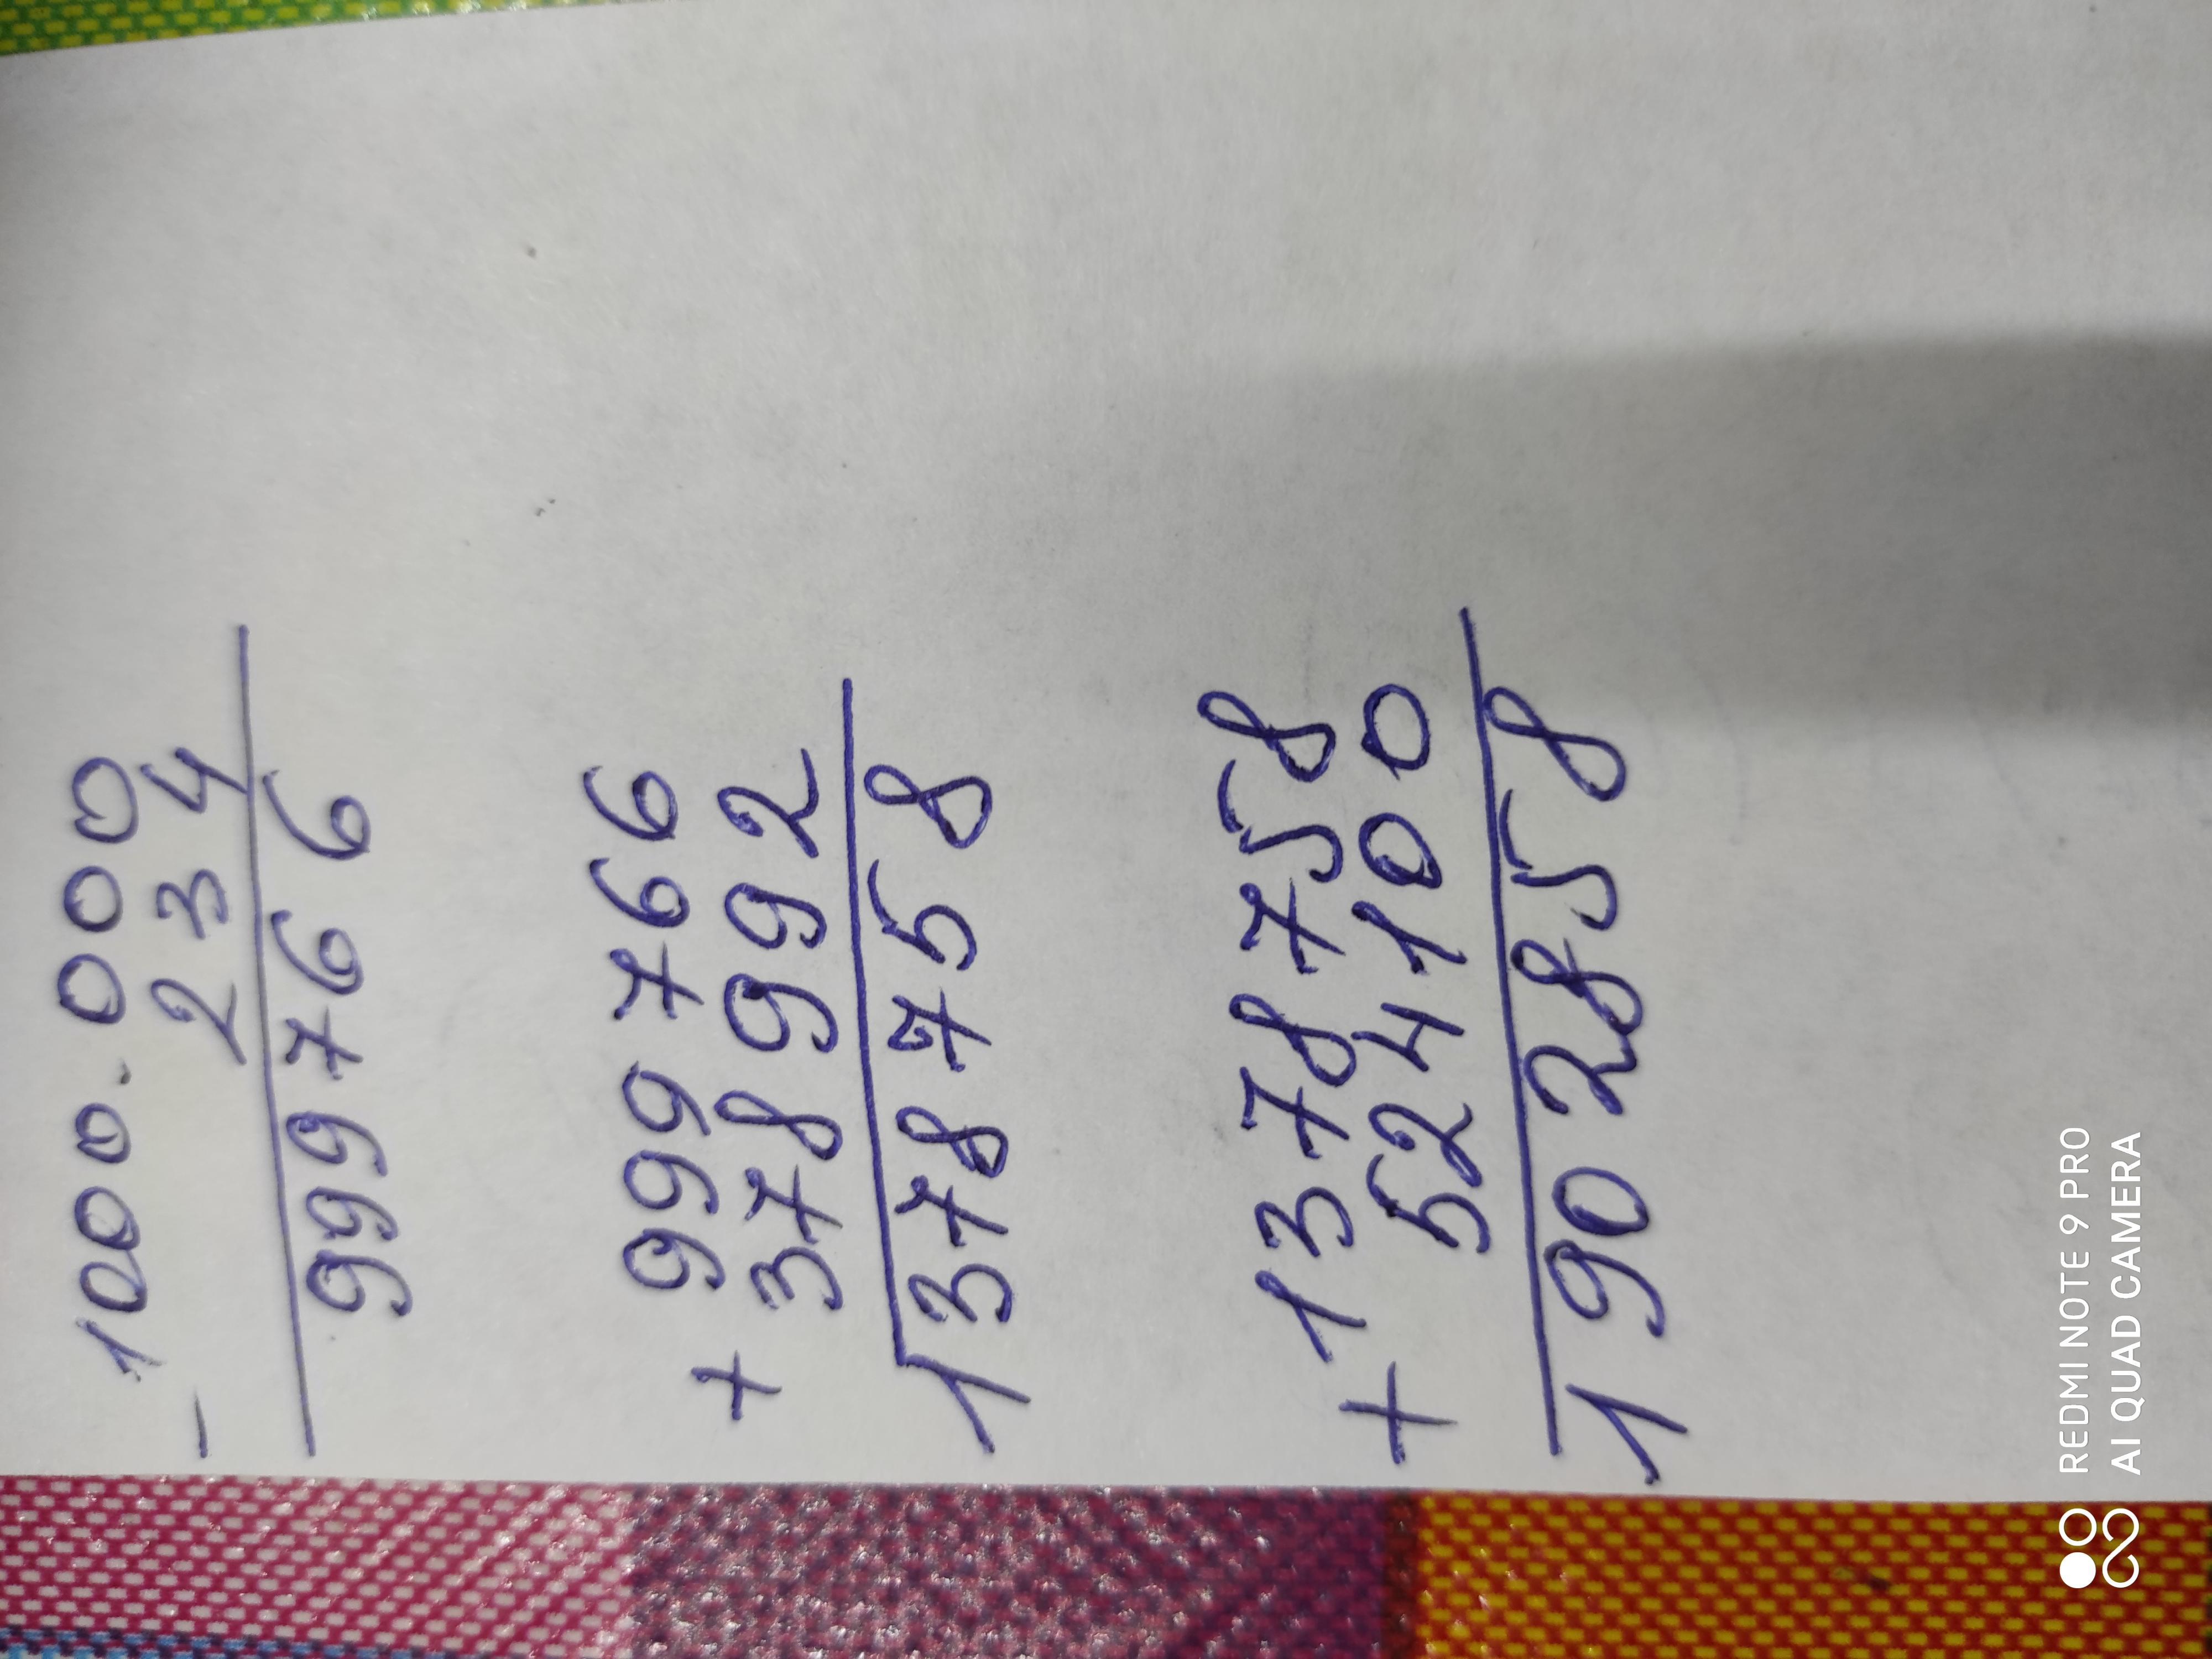 1000.000
- 234
999766
999766
+ 378992
1378758
1378758
+ 524100
1902858
REDMI NOTE 9 PRO
AI QUAD CAMERA